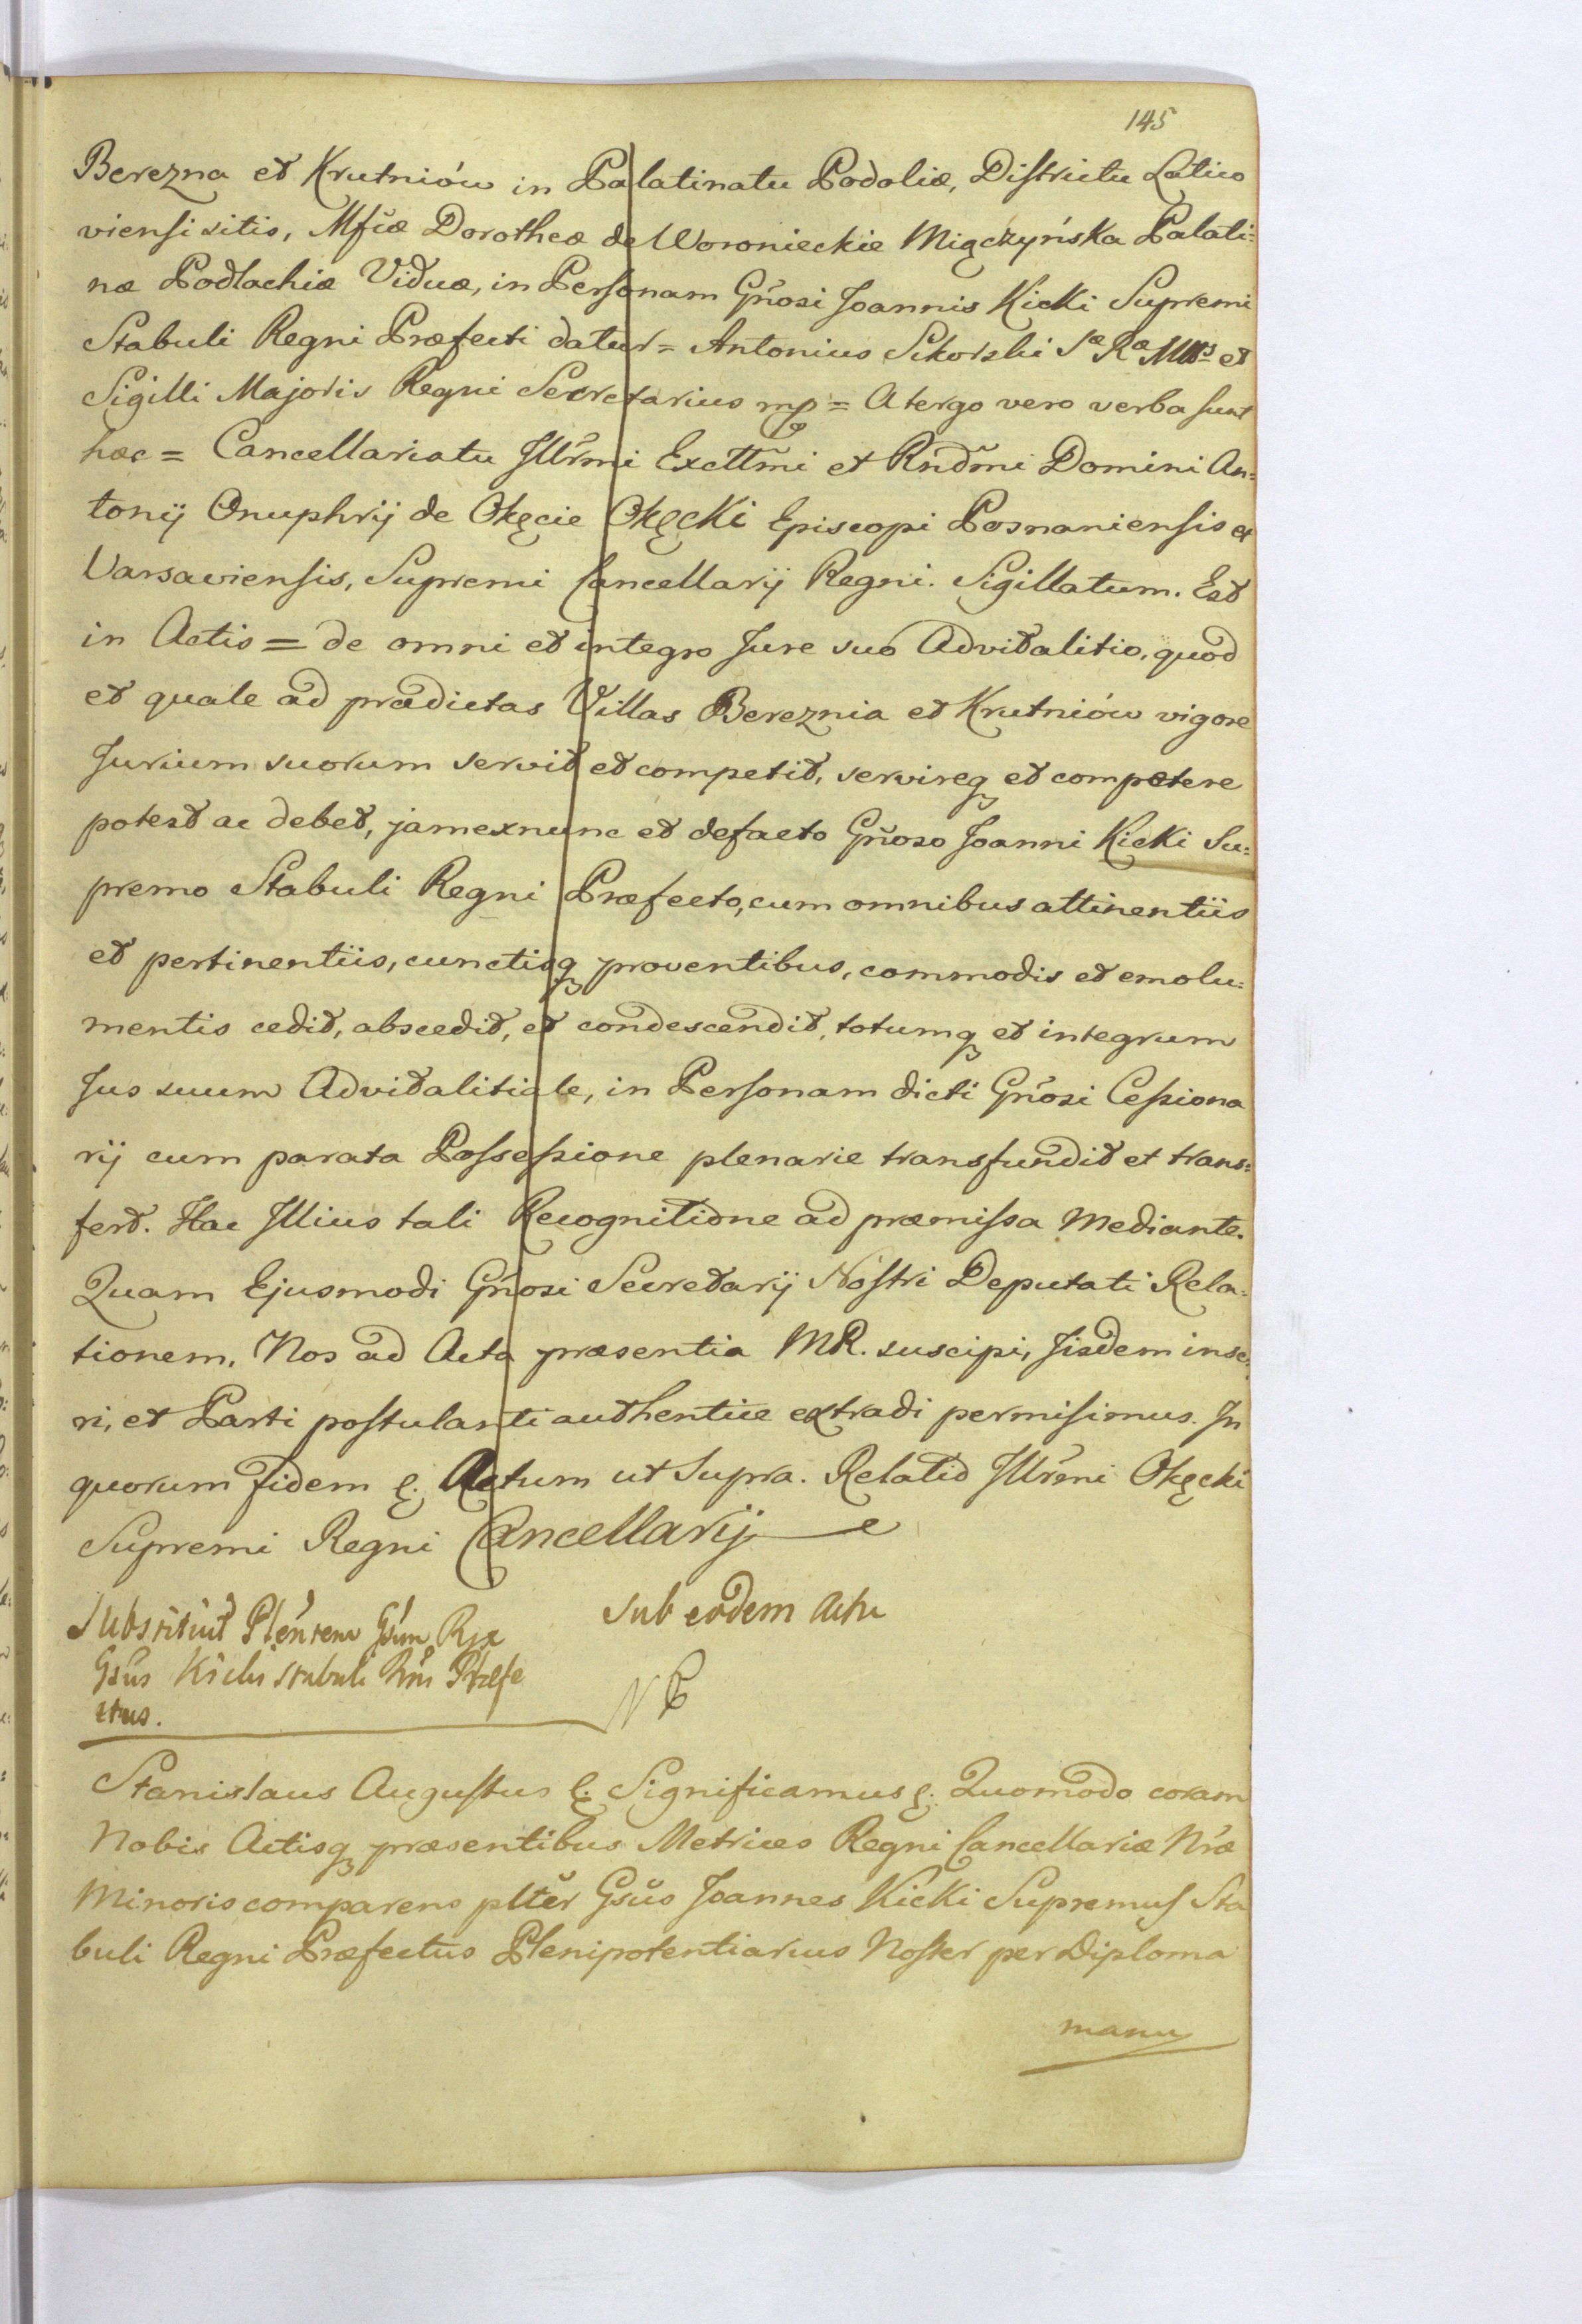 145
Berezna et Krutniów in Palatinatu Podoliæ, Districtu Latico
viensi sitis, Mfcæ Dorotheæ de Woronieckie Miączyńska Palati=
næ Podlachiæ Viduæ, in Personam Gnosi Joannis Kicki Supremi
Stabuli Regni Præfecti datur = Antonius Sikorski Sæ Ræ Mtis et
Sigilli Majoris Regni Secretarius mp = A tergo vero verba sunt
hæc = Cancellariatu Illrmi Excllmi et Rndmi Domini An=
tonij Onuphrij de Okęcie Okęcki Episcopi Posnaniensis et
Varsaviensis, Supremi Cancellarij Regni. Sigillatum. Est
in Actis = de omni et integro Jure suo Advitalitio, quod
et quale ad prædictas Villas Bereznia et Krutniów vigore
Jurium suorum servit et competit, servireq et competere
potest ac debet, jam ex nunc et de facto Gnoso Joanni Kicki Su=
premo Stabuli Regni Præfecto, cum omnibus attinentiis
et pertinentiis, cunctisq proventibus, commodis et emolu=
mentis cedit, abscedit, et condescendit, totumq et integrum
Jus suum Advitalitiale, in Personam dicti Gnosi Cessiona
rij cum parata Possessione plenarie transfundit et trans=
fert. Hac Illius tali Recognitione ad præmissa Mediante.
Quam Ejusmodi Gnosi Secretarij Nostri Deputati Rela=
tionem, Nos ad Acta præsentia MR. suscipi, Iisdem inse=
ri, et Parti postulanti authentice extradi permisimus. In
quorum fidem &. Actum ut supra. Relatio Illrmi Okęcki
Supremi Regni Cancellarij
Substituit Plentem Gsum Rix
Gsus Kicki Stabuli Rni Præfe
ctus.
sub eodem Actu
Stanislaus Augustus &. Significamus &. Quomodo coram
Nobis Actisq præsentibus Metrices Regni Cancellariæ Nræ
Minoris comparens plter Gsus Joannes Kicki Supremus Sta
buli Regni Præfectus Plenipotentiarius Noster per Diploma
manu